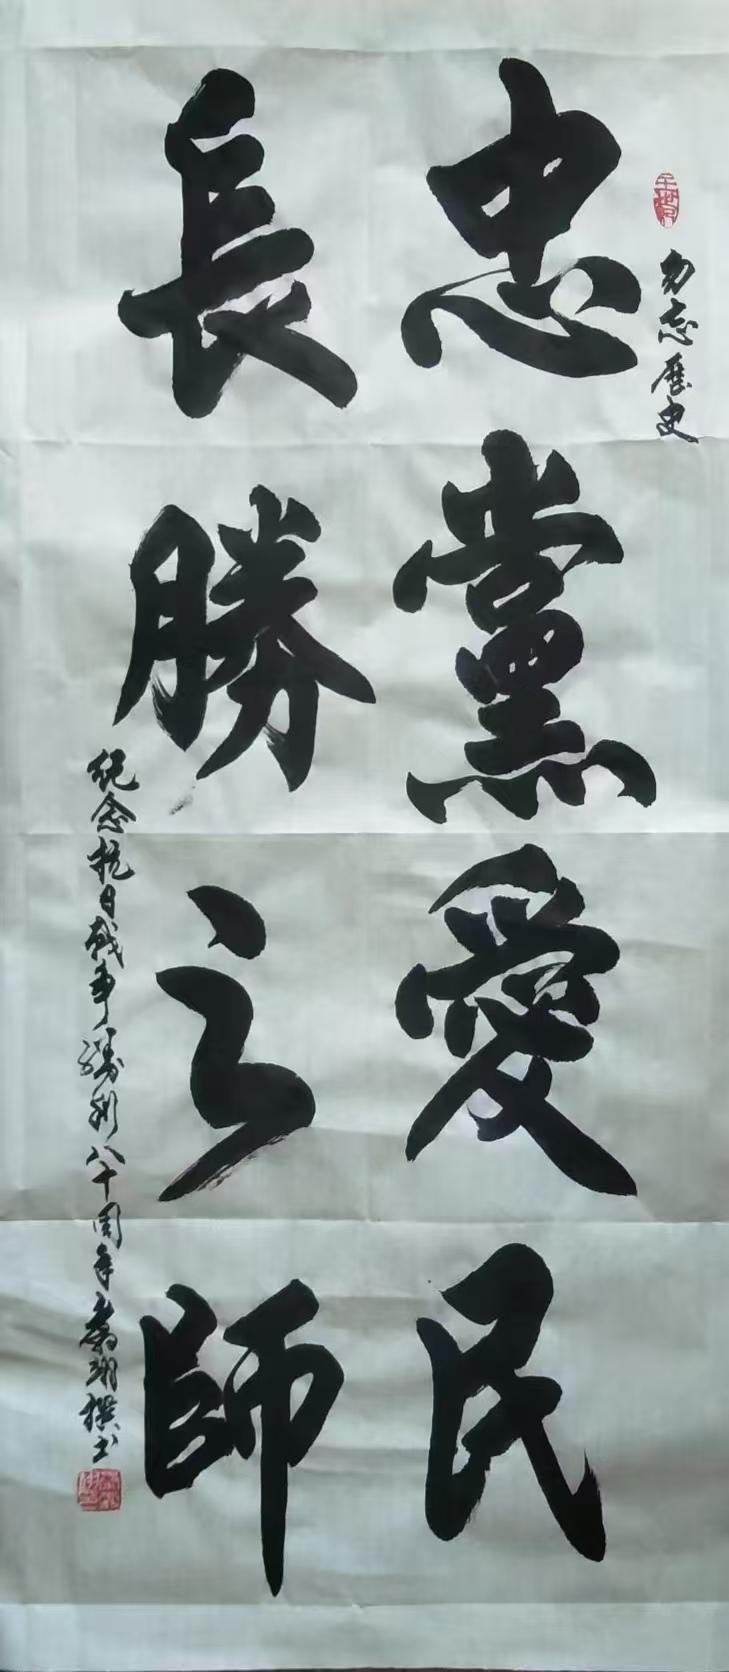 勿忘歷史
忠黨愛民
長勝之師
紀念抗日战争勝利八十周年
撰书